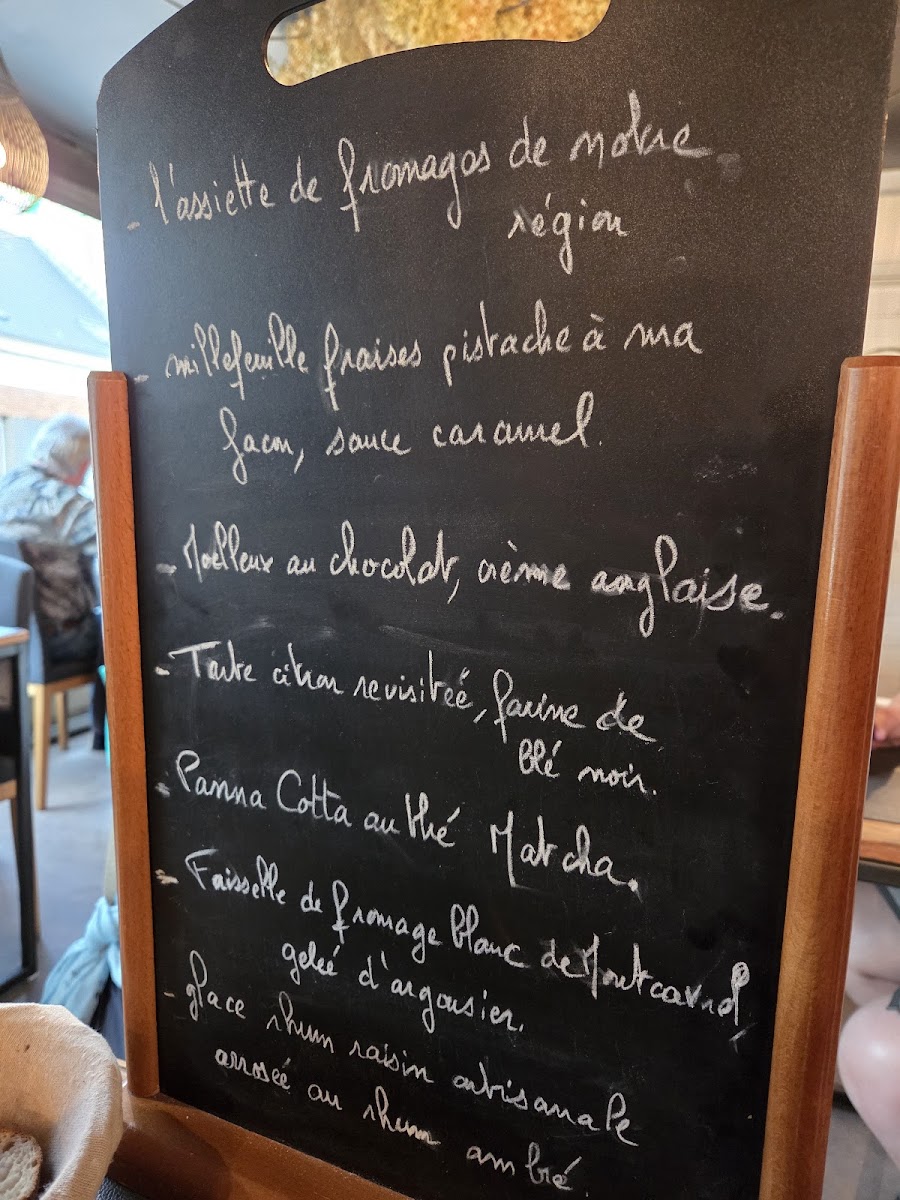 - l'assiette de fromages de notre
région
- millefeuille fraises pistache à ma
façon, sauce caramel.
- Moelleux au chocolat, crème anglaise.
- Tarte citron revisitée, farine de
blé noir.
- Panna Cotta au thé Matcha.
- Faisselle de fromage blanc de Montcavrel
gelée d'argousier.
- glace rhum raisin artisanale
arrosée au rhum ambré.